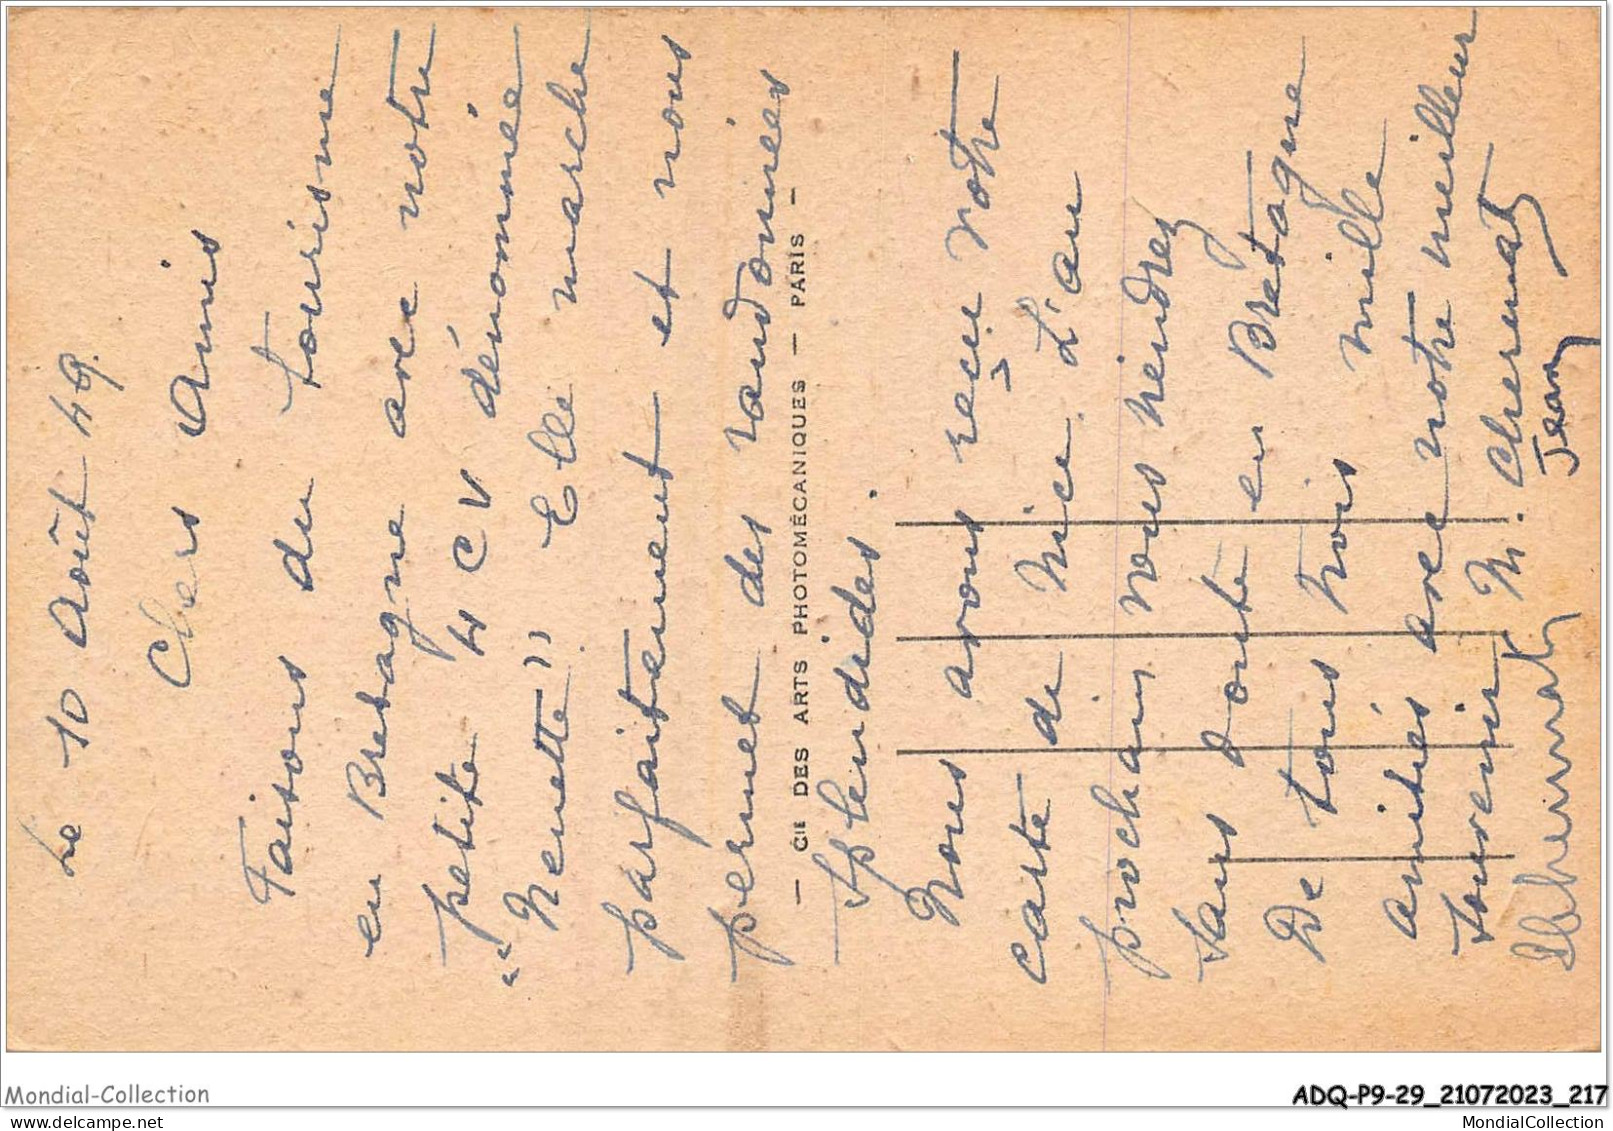 Le 10 Août 49.
Chers Amis
Faisons du tourisme
en Bretagne avec notre
petite 4 CV dénommée
"Nenette" Elle marche
parfaitement et nous
permet des randonnées
— CIE DES ARTS PHOTOMÉCANIQUES — PARIS —
splendides.
Nous avons reçu votre
carte de Nice. L'an
prochain vous viendrez
sans doute en Bretagne
De tous trois mille
amitiés avec notre meilleur
souvenir M. Cheremat
Jean
Mondial-Collection
ADQ-P9-29_21072023_217
MondialCollection